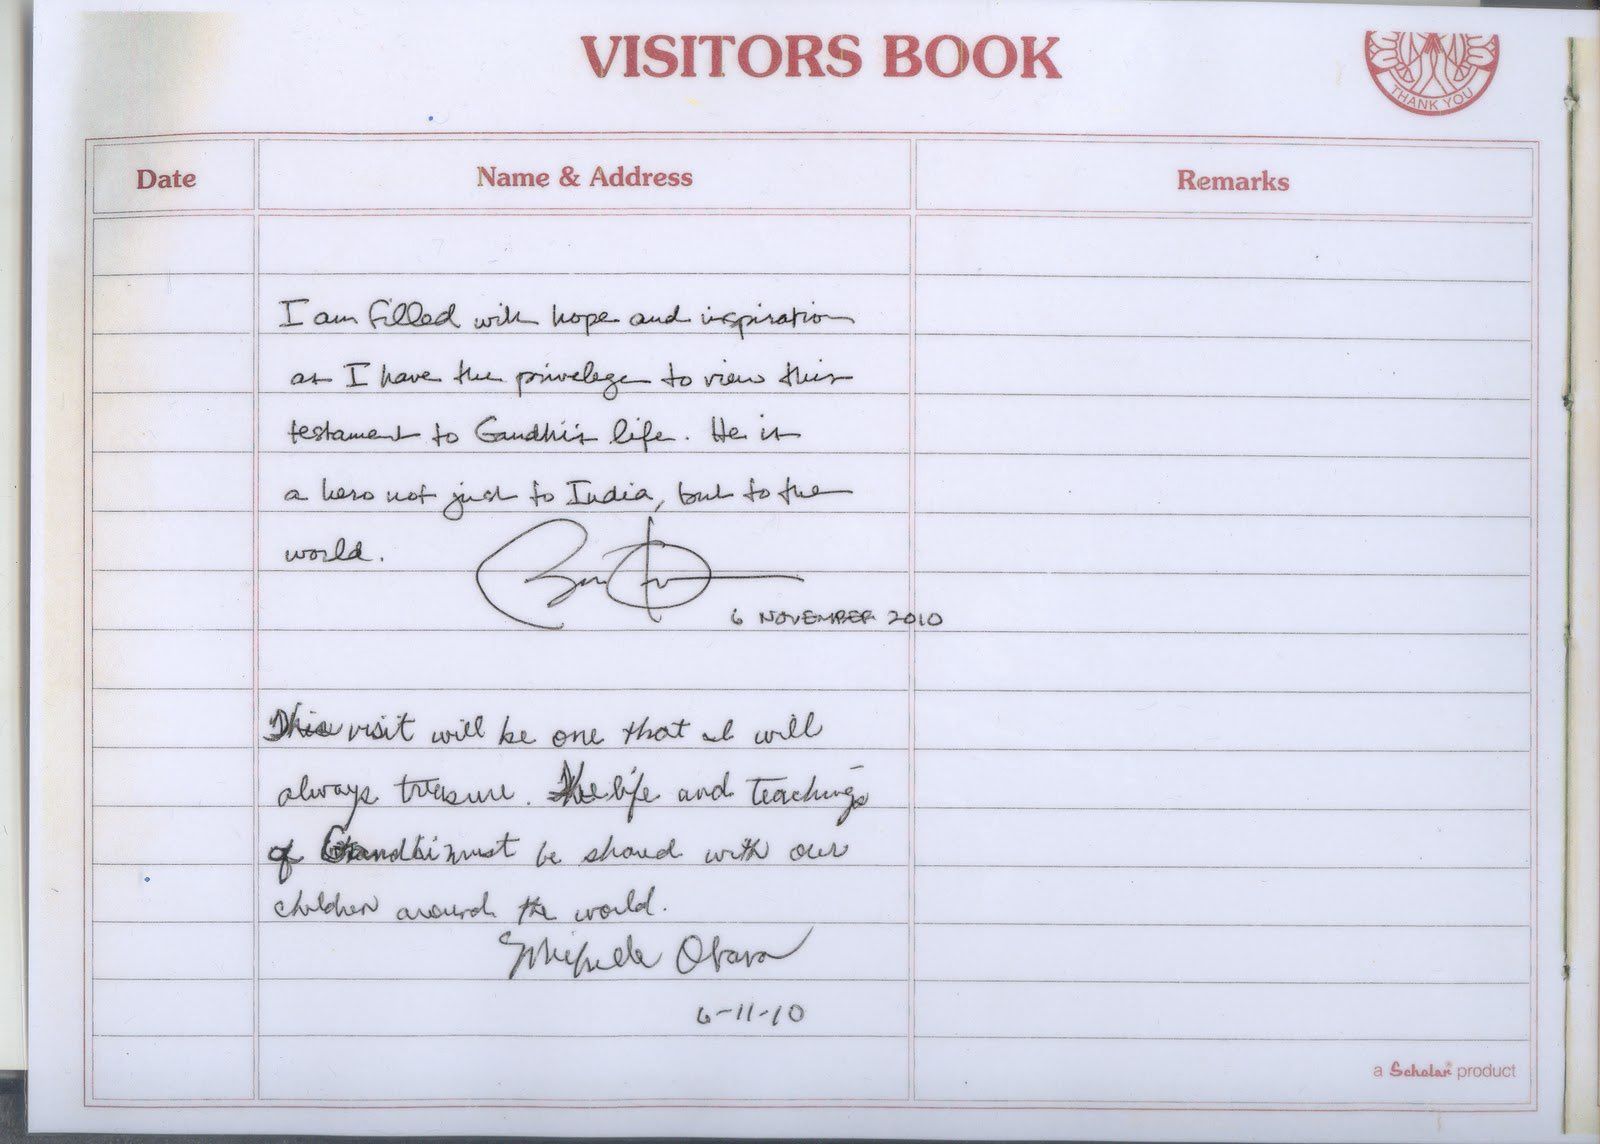 VISITORS BOOK
THANK YOU
Date
Name & Address
Remarks
I am filled with hope and inspiration
as I have the privelege to view this
testament to Gandhi's life. He is
a hero not just to India, but to the
world.
6 NOVEMBER 2010
This visit will be one that I will
always treasure. The life and teachings
of Gandhi must be shared with our
children around the world.
Michelle Obama
6-11-10
a Scholar product